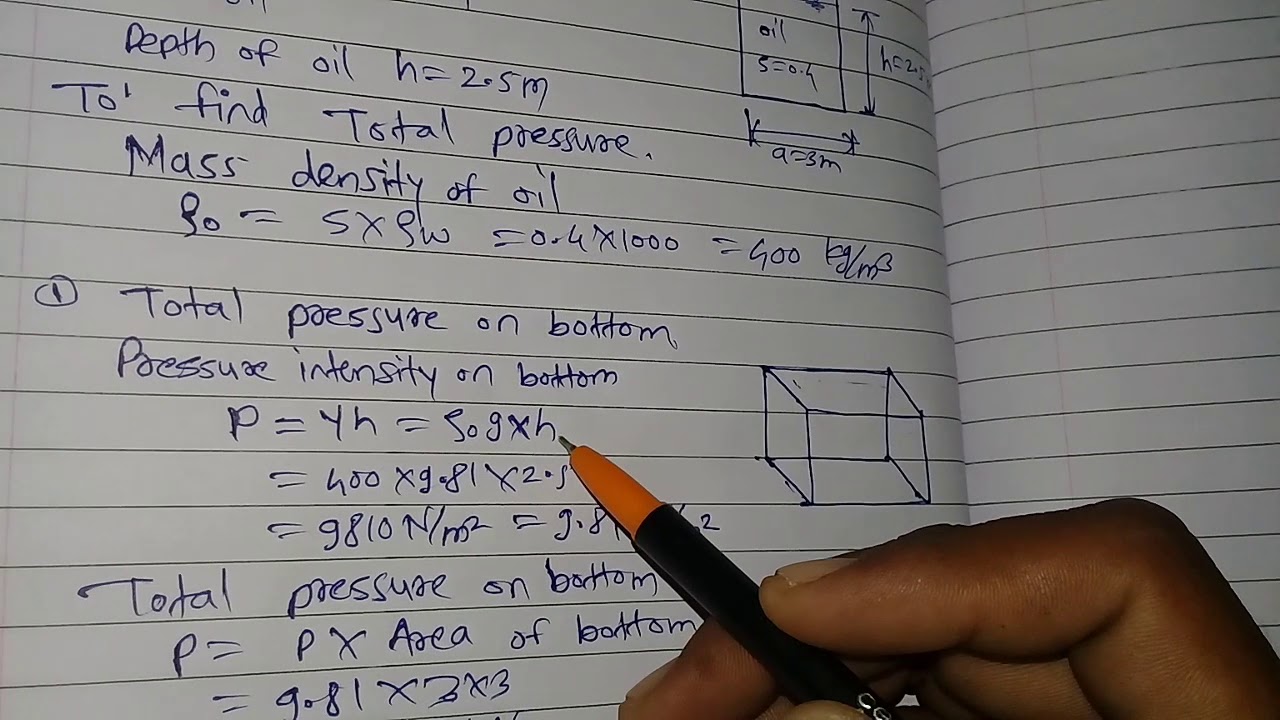 oil
Depth of oil h = 2.5m
To' find Total pressure.
Mass density of oil
ρo = S × ρw = 0.4 × 1000 = 400 kg/m³
① Total pressure on bottom.
Pressure intensity on bottom
P = γh = ρo g × h
= 400 × 9.81 × 2.5
= 9810 N/m² = 9.81
Total pressure on bottom
P = P × Area of bottom
= 9.81 × 3 × 3
oil
S=0.4
h=2.5
a=3m